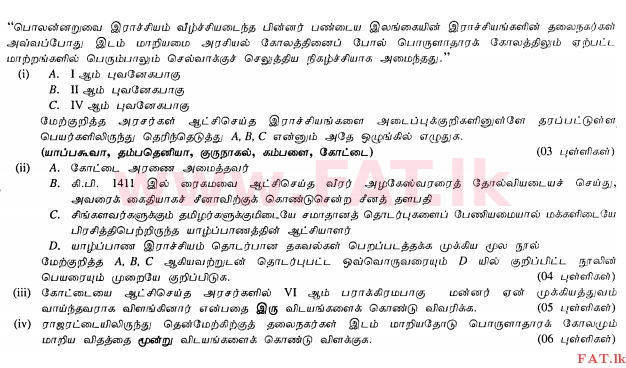 “பொலன்னறுவை இராச்சியம் வீழ்ச்சியடைந்த பின்னர் பண்டைய இலங்கையின் இராச்சியங்களின் தலைநகர்கள்
அவ்வப்போது இடம் மாறியமை அரசியல் கோலத்தினைப் போல் பொருளாதாரக் கோலத்திலும் ஏற்பட்ட
மாற்றங்களில் பெரும்பாலும் செல்வாக்குச் செலுத்திய நிகழ்ச்சியாக அமைந்தது.”
(i) A. I ஆம் புவனேகபாகு
B. II ஆம் புவனேகபாகு
C. IV ஆம் புவனேகபாகு
மேற்குறித்த அரசர்கள் ஆட்சிசெய்த இராச்சியங்களை அடைப்புக்குறிகளினுள்ளே தரப்பட்டுள்ள
பெயர்களிலிருந்து தெரிந்தெடுத்து A, B, C என்னும் அதே ஒழுங்கில் எழுதுக.
(யாப்பகூவா, தம்பதெனியா, குருநாகல், கம்பளை, கோட்டை) (03 புள்ளிகள்)
(ii) A. கோட்டை அரணை அமைத்தவர்
B. கி.பி. 1411 இல் ரைகமவை ஆட்சிசெய்த வீரர் அழகேஸ்வரரைத் தோல்வியடையச் செய்து,
அவரைக் கைதியாகச் சீனாவிற்குக் கொண்டுசென்ற சீனத் தளபதி
C. சிங்களவர்களுக்கும் தமிழர்களுக்குமிடையே சமாதானத் தொடர்புகளைப் பேணியமையால் மக்களிடையே
பிரசித்திபெற்றிருந்த யாழ்ப்பாணத்தின் ஆட்சியாளர்
D. யாழ்ப்பாண இராச்சியம் தொடர்பான தகவல்கள் பெறப்படத்தக்க முக்கிய மூல நூல்
மேற்குறித்த A, B, C ஆகியவற்றுடன் தொடர்புபட்ட ஒவ்வொருவரையும் D யில் குறிப்பிட்ட நூலின்
பெயரையும் முறையே குறிப்பிடுக. (04 புள்ளிகள்)
(iii) கோட்டையை ஆட்சிசெய்த அரசர்களில் VI ஆம் பராக்கிரமபாகு மன்னர் ஏன் முக்கியத்துவம்
வாய்ந்தவராக விளங்கினார் என்பதை இரு விடயங்களைக் கொண்டு விவரிக்க. (05 புள்ளிகள்)
(iv) ராஜரட்டையிலிருந்து தென்மேற்கிற்குத் தலைநகர்கள் இடம் மாறியதோடு பொருளாதாரக் கோலமும்
மாறிய விதத்தை மூன்று விடயங்களைக் கொண்டு விளக்குக. (06 புள்ளிகள்)
www.FAT.lk
FAT.lk